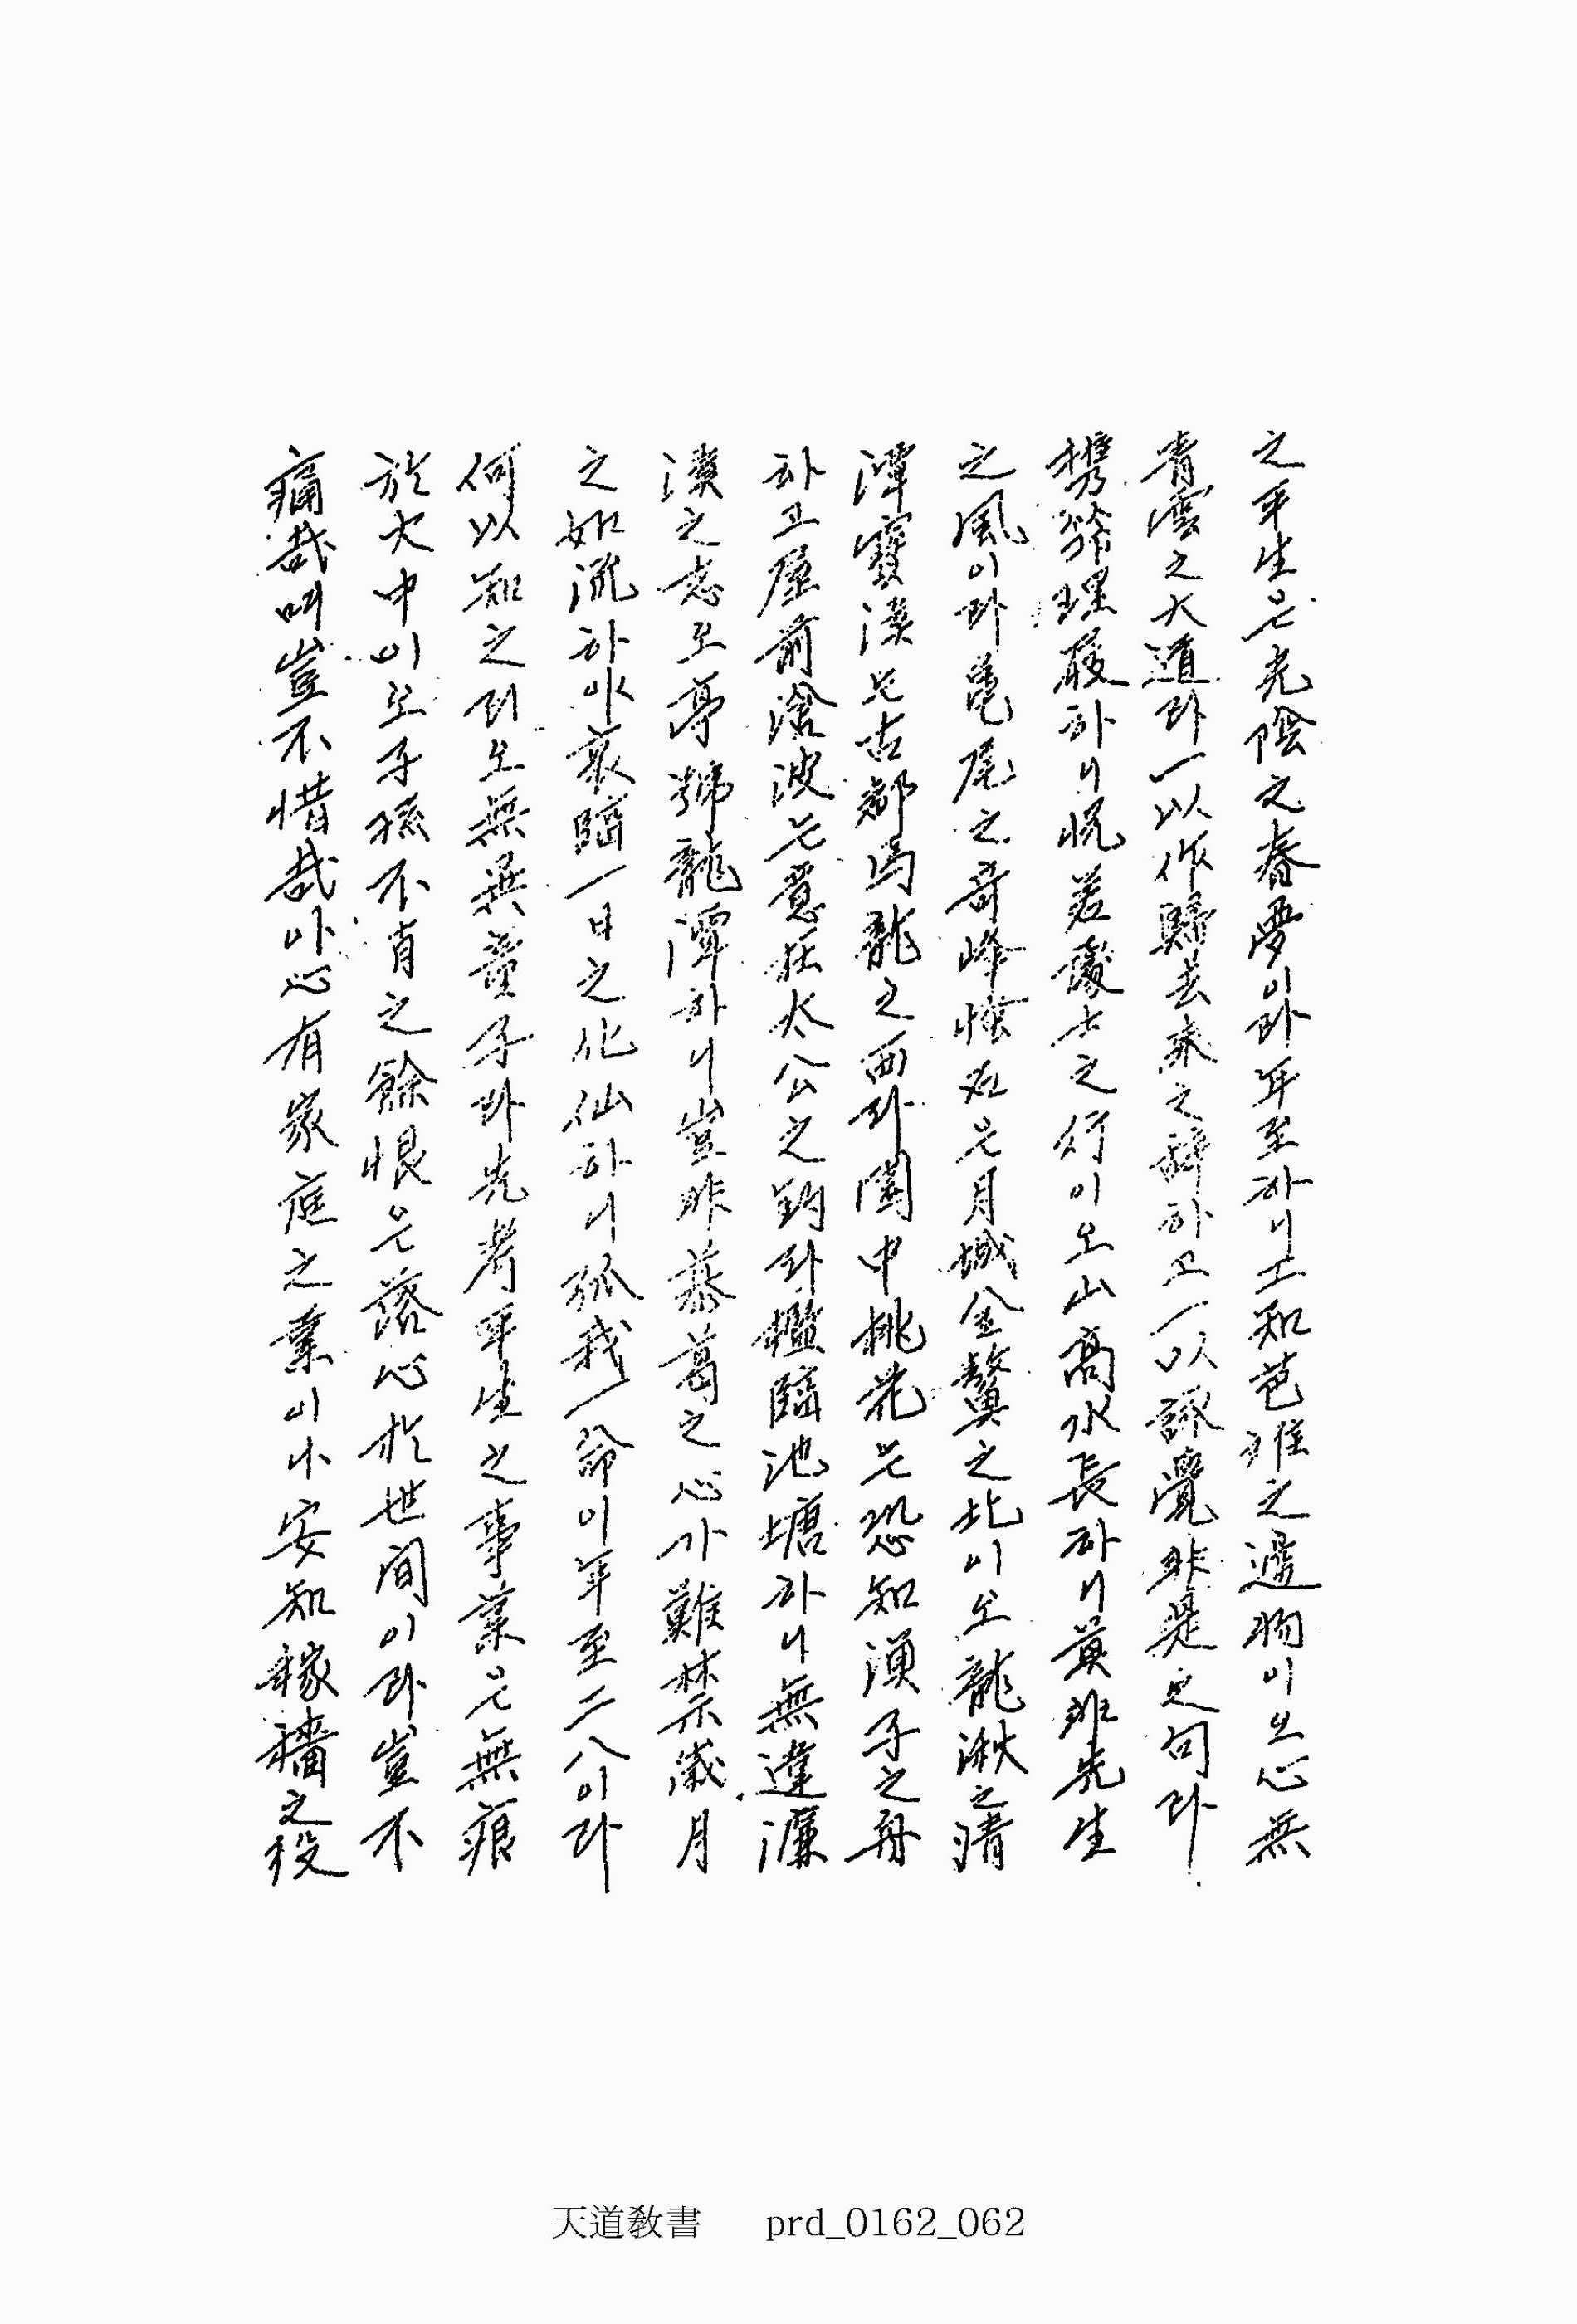 之平生은光陰之春夢이라年至하니工知芭琟之過物이오心無
靑雲之大道라一以作歸去來之辭하고一以詠覺非是之句라
携笻理屐하니怳若處士之行이오山高水長하니莫非先生
之風이라龜尾之奇峰怪石은月城金鰲之北이오龍湫之淸
潭寶溪은古都馬龍之西라園中桃花은恐知漁子之舟
하고屋前滄波은意在太公之釣라檻臨池塘하니無違濂
溪之志오亭號龍潭하니豈非慕葛之心가難禁歲月
之如流하야哀臨一日之化仙하니孤我一命이年至二八이라
何以知之리오無異童子라先考平生之事業은無痕
於火中이오子孫不肖之餘恨은落心於世間이라豈不
痛哉며豈不惜哉아心有家庭之業이나安知稼穡之役
天道敎書 prd_0162_062